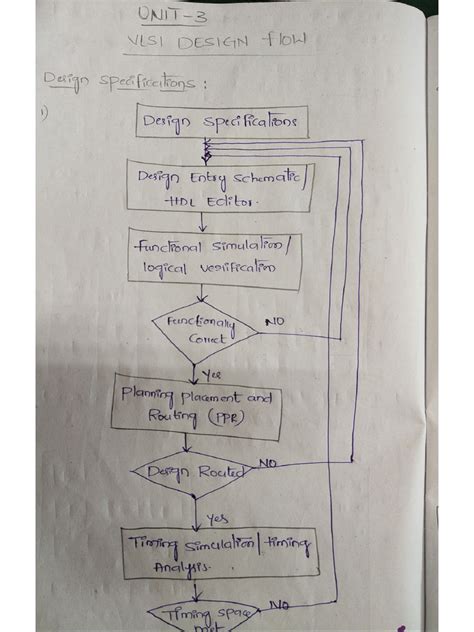 UNIT-3
VLSI DESIGN flow
Design specifications :
1)
Design specifications
Design Entry schematic/
HDL Editor.
functional simulation/
logical verification
Functionally
Correct
NO
Yes
Planning placement and
Routing (PPR)
Design Routed
NO
Yes
Timing simulation/timing
Analysis.
Timing space
met
No